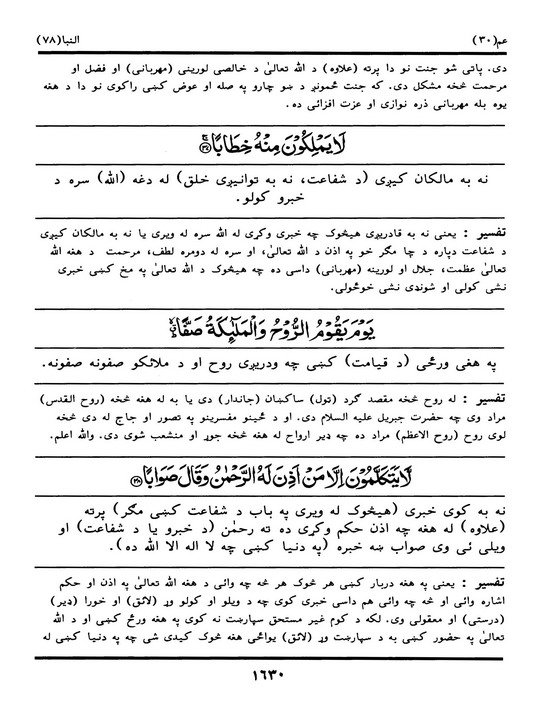 عم(٣٠)
النبا(٧٨)
دی. پاتی شو جنت نو دا پرته (علاوه) د الله تعالیٰ د خالصی لورینی (مهربانی) او فضل او
مرحمت څخه مشکل دی. که جنت ځمونږ د ښو چارو په صله او عوض کښی راکوی نو دا د هغه
یوه بله مهربانی ذره نوازی او عزت افزائی ده.
لَا يَمْلِكُوْنَ مِنْهُ خِطَابًا ﴿٣٧﴾
نه به مالکان کیږی (د شفاعت، نه به توانیږی خلق) له دغه (الله) سره د
خبرو کولو.
تفسیر : یعنی نه به قادریږی هیڅوک چه خبری وکړی له الله سره له ویری یا نه به مالکان کیږی
د شفاعت دپاره د چا مگر خو په اذن د الله تعالیٰ، او سره له دومره لطف، مرحمت د هغه الله
تعالیٰ عظمت، جلال او لورینه (مهربانی) داسی ده چه هیڅوک د الله تعالیٰ په مخ کښی خبری
نشی کولی او شوندی نشی خوځولی.
يَوْمَ يَقُوْمُ الرُّوْحُ وَالْمَلٰٓئِكَةُ صَفًّا
په هغی ورځی (د قیامت) کښی چه ودریږی روح او د ملائکو صفونه صفونه.
تفسیر : له روح څخه مقصد گرد (تول) ساکښان (جاندار) دی یا به له هغه څخه (روح القدس)
مراد وی چه حضرت جبریل علیه السلام دی. او د ځینو مفسرینو په تصور او جاج له دی څخه
لوی روح (روح الاعظم) مراد ده چه ډیر ارواح له هغه څخه جوړ او منشعب شوی دی. والله اعلم.
لَا يَتَكَلَّمُوْنَ اِلَّا مَنْ اَذِنَ لَهُ الرَّحْمٰنُ وَقَالَ صَوَابًا ﴿٣٨﴾
نه به کوی خبری (هیڅوک له ویری په باب د شفاعت کښی مگر) پرته
(علاوه) له هغه چه اذن حکم وکړی ده ته رحمٰن (د خبرو یا د شفاعت) او
ویلی ئی وی صواب ښه خبره (په دنیا کښی چه لا اله الا الله ده).
تفسیر : یعنی په هغه دربار کښی هر څوک هر څه چه وائی د هغه الله تعالیٰ په اذن او حکم
اشاره وائی او څه چه وائی هم داسی خبری کوی چه د ویلو او کولو وړ (لائق) او خورا (ډیر)
(درستی) او معقولی وی. لکه د کوم غیر مستحق سپارښت نه کوی په هغه ورځ کښی او د الله
تعالیٰ په حضور کښی به د سپارښت وړ (لائق) یواځی هغه څوک کیدی شی چه په دنیا کښی له
١٦٣٠